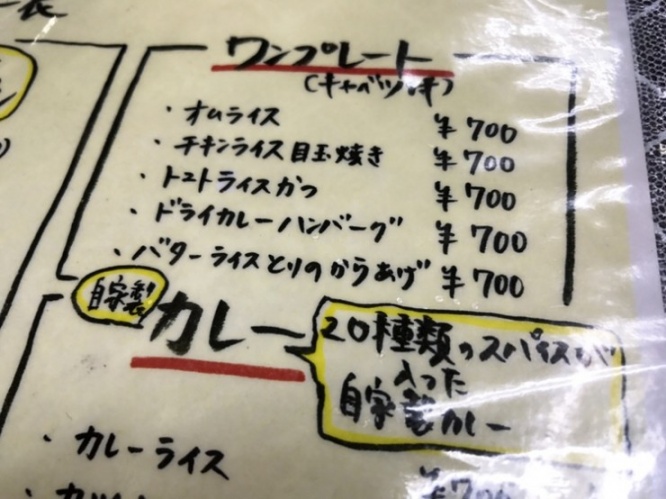 ワンプレート
(キャベツ付)
・オムライス ¥700
・チキンライス目玉焼き ¥700
・トマトライスかつ ¥700
・ドライカレーハンバーグ ¥700
・バターライスとりのからあげ ¥700
自家製
カレー
20種類のスパイスが
入った
自家製カレー
・カレーライス